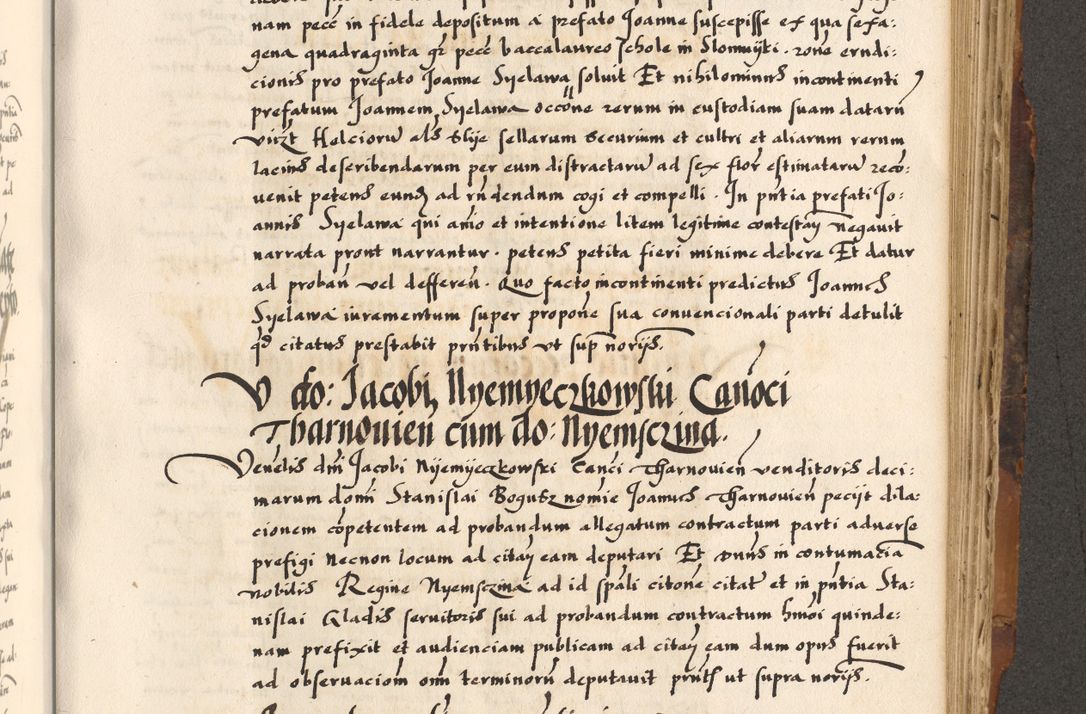 nam pecc in fidele depositum a prefato Joanne suscepisse ex qua sexa:
gena quadraginta gr pecc baccalaureo schole in Slomnyki . rone erudi:
cionis pro prefato Joanne Syelawa soluit Et nihilominus incontinenti
prefatum Joannem Syelawa occone rerum in custodiam suam datarum
vizt Helcioru als Slije sellarum securium et cultri et aliarum rerum
lacius describendarum per eum distractaru ad sex flor estimataru reco:
uenit petens eund ad rndendum cogi et compelli . In pntia prefati Jo:
annis Syelawa qui anio et intentione litem legitime contestan negauit
narrata prout narrantur . petens petita fieri minime debere Et datur
ad proban vel defferen . Quo facto incontinenti predictus Joannes
Syelawa iuramentum super propone sua conuencionali parti detulit
qd citatus prestabit pntibus ut sup norijs.
V do: Jacobi Nyemyeczkowski Canoci
Tharnouien cum do: Nyemsczina.
Venelis dni Jacobi Nyemyeczkowski Canci Tharnouien venditoris deci:
marum domi Stanislai Bogusz nomie Joannes Tharnouien pecijt dila:
cionem competentem ad probandum allegatum contractum parti aduerse
prefigi necnon locum ad citan eam deputari Et Dnus in contumacia
nobilis Regine Nyemsczina ad id spali citone citat et in pntia Sta:
nislai Gladis seruitoris sui ad probandum contractum hmoi quinde:
nam prefixit et audienciam publicam ad citan eam dum opus fuerit
ad obseruaciom oni terminoru deputauit pntes ut supra norijs.